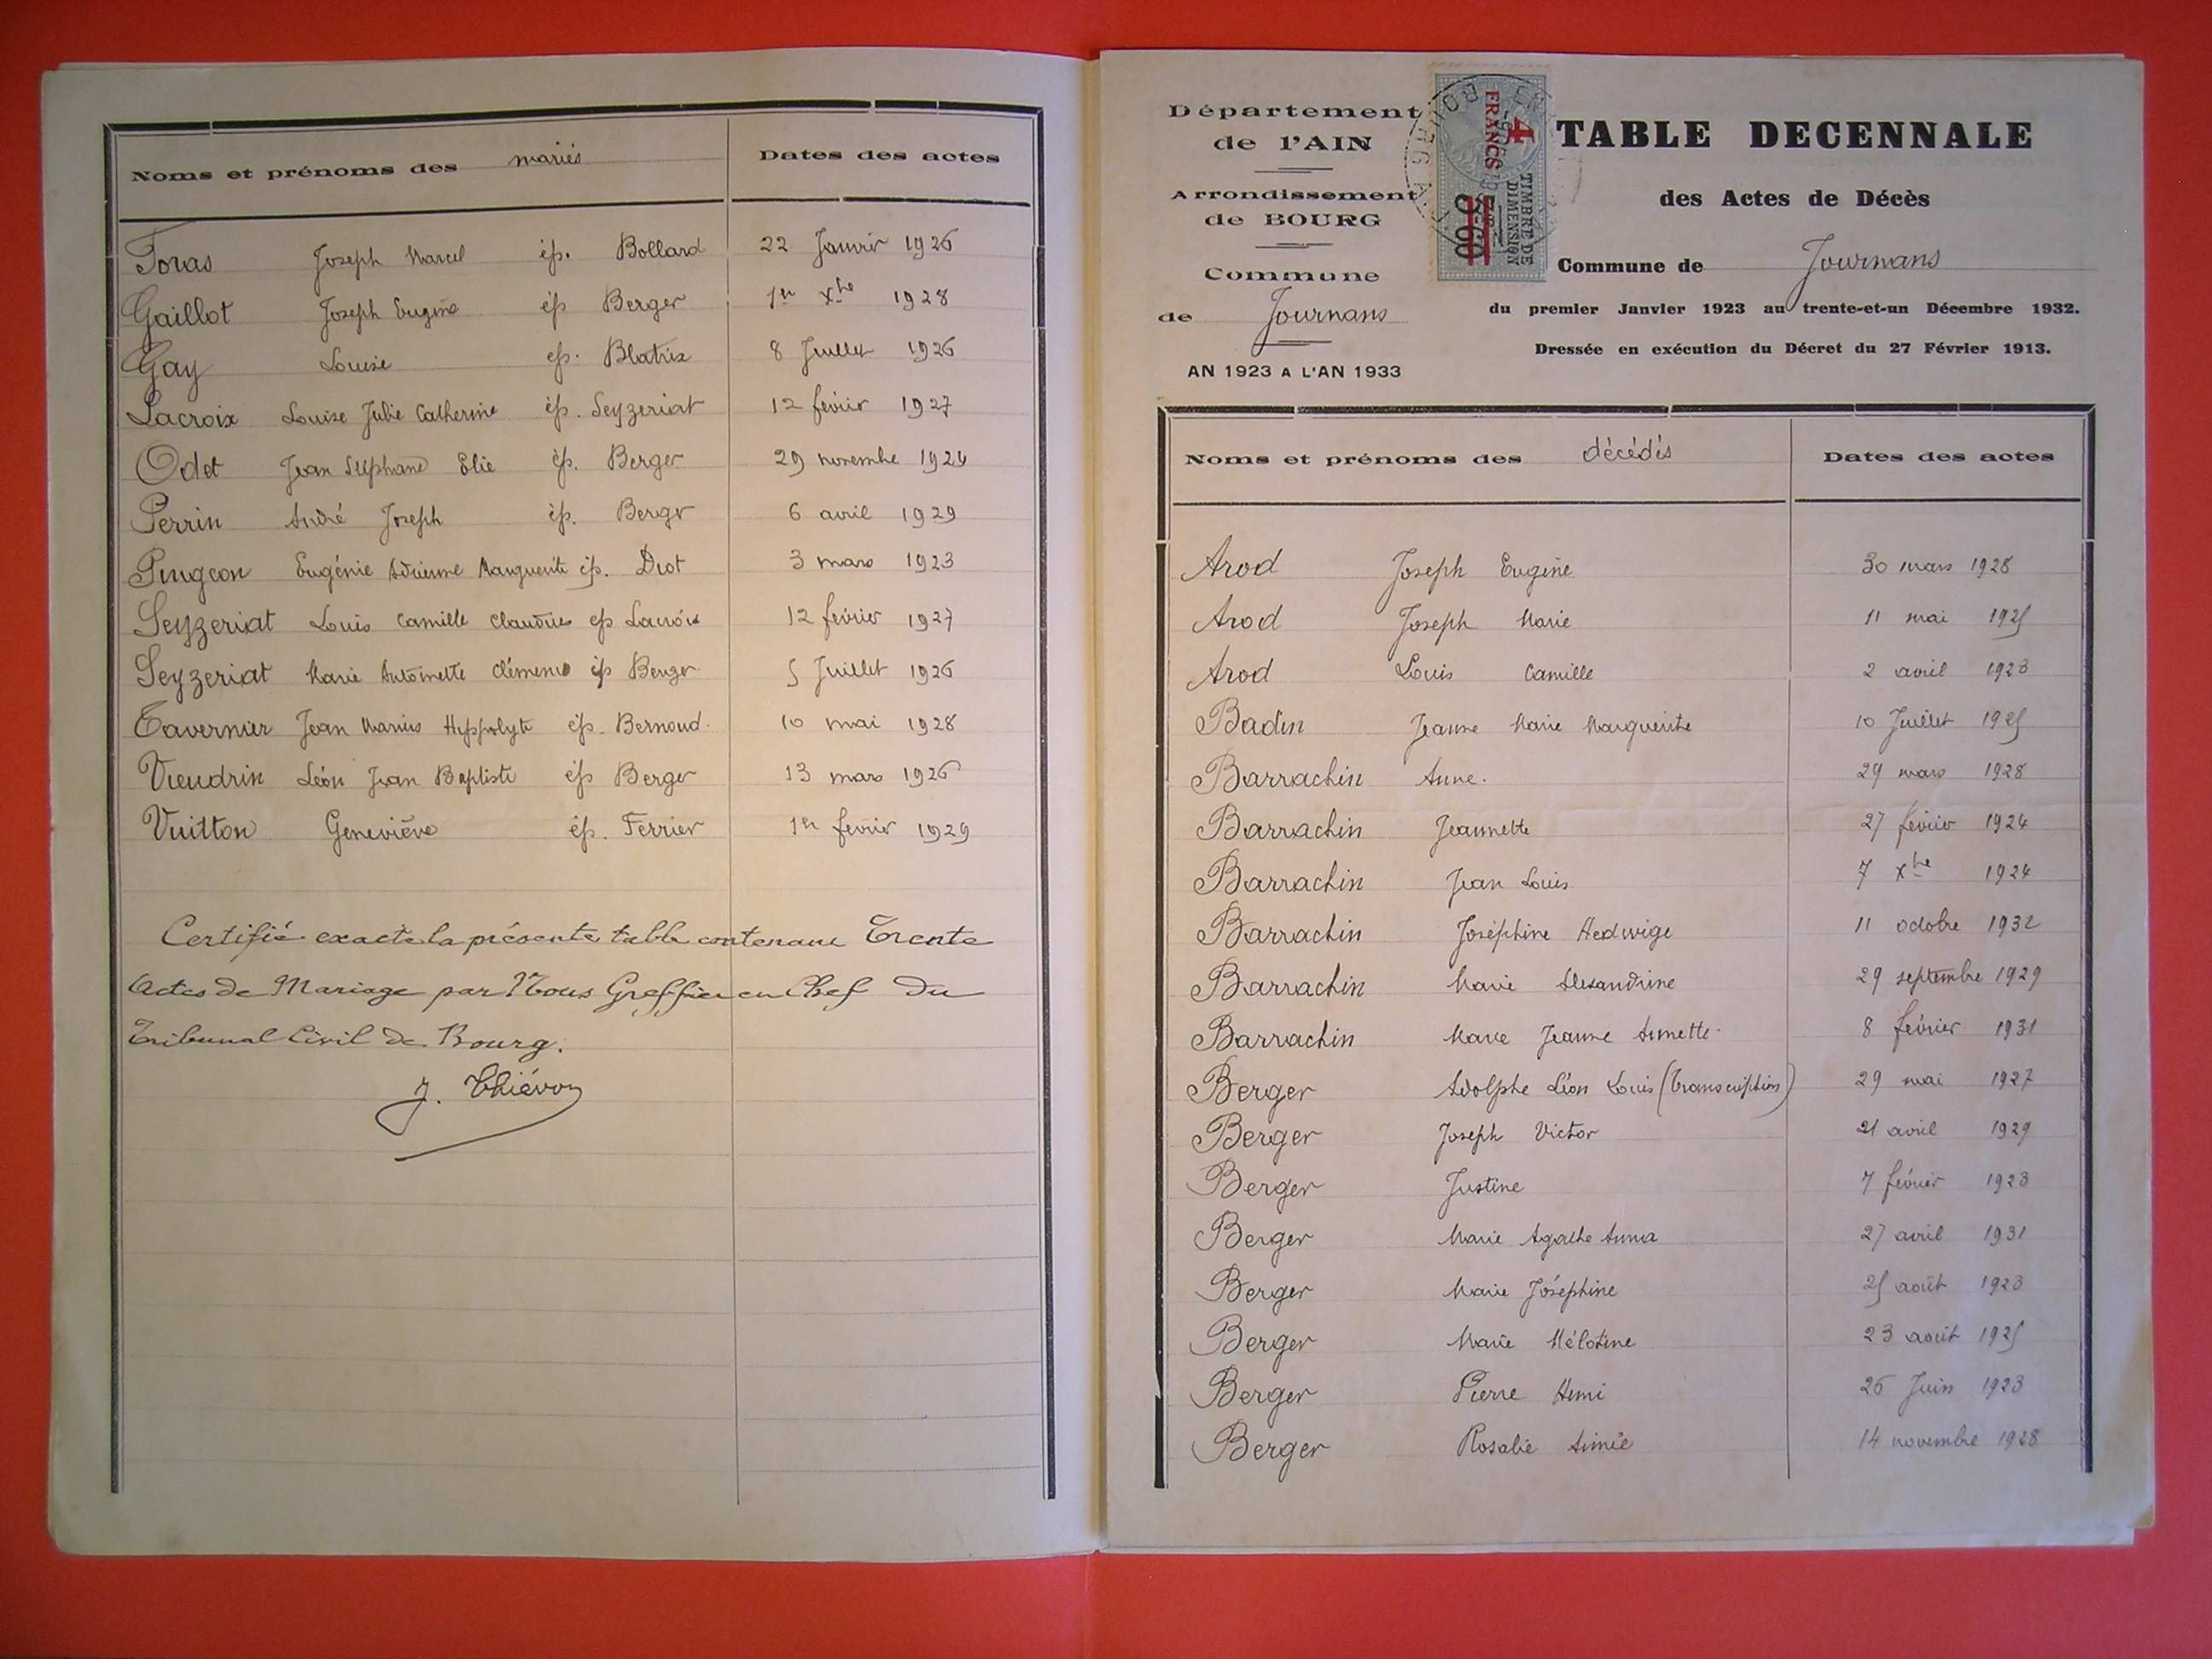 Noms et prénoms des mariés Dates des actes
Joseph Marcel ép. Bollard 22 Janvier 1926
Gaillot Joseph Eugène ép Berger 1er Xbre 1928
Gay Louise ép. Blatrix 8 Juillet 1926
Lacroix Louise Julie Catherine ép. Seyzeriat 12 février 1927
Odet Jean Stéphane Elie ép. Berger 29 novembre 1924
Perrin André Joseph ép. Berger 6 avril 1929
Pingeon Eugénie Adrienne Marguerite ép. Diot 3 mars 1923
Seyzeriat Louis Camille Claudius ép Lacroix 12 février 1927
Seyzeriat Marie Antoinette Clémence ép Berger 5 Juillet 1926
Tavernier Jean Marius Hyppolyte ép. Bernoud 10 mai 1928
Vieudrin Léon Jean Baptiste ép Berger 13 mars 1926
Vuitton Geneviève ép. Ferrier 1er février 1929
Certifié exacte la présente table contenant Trente
Actes de Mariage par Nous Greffier en Chef du
Tribunal Civil de Bourg.
J. Thiévon
Département
de l'AIN
Arrondissement
de BOURG
Commune
de Journans
AN 1923 A L'AN 1933
4 FRANCS
TIMBRE DE
DIMENSION
TABLE DECENNALE
des Actes de Décès
Commune de Journans
du premier Janvier 1923 au trente-et-un Décembre 1932.
Dressée en exécution du Décret du 27 Février 1913.
Noms et prénoms des décédés Dates des actes
Arod Joseph Eugène 30 mars 1928
Arod Joseph Marie 11 mai 1925
Arod Louis Camille 2 avril 1923
Badin Jeanne Marie Marguerite 10 Juillet 1925
Barrachin Anne. 29 mars 1928
Barrachin Jeannette 27 février 1924
Barrachin Jean Louis 7 Xbre 1924
Barrachin Joséphine Hedwige 11 octobre 1932
Barrachin Marie Alexandrine 29 septembre 1929
Barrachin Marie Jeanne Annette 8 février 1931
Berger Adolphe Léon Louis (Transcription) 29 mai 1927
Berger Joseph Victor 21 avril 1929
Berger Justine 7 février 1923
Berger Marie Agathe Anna 27 avril 1931
Berger Marie Joséphine 25 août 1923
Berger Marie Mélotine 23 août 1925
Berger Pierre Henri 26 Juin 1923
Berger Rosalie Aimée 14 novembre 1928